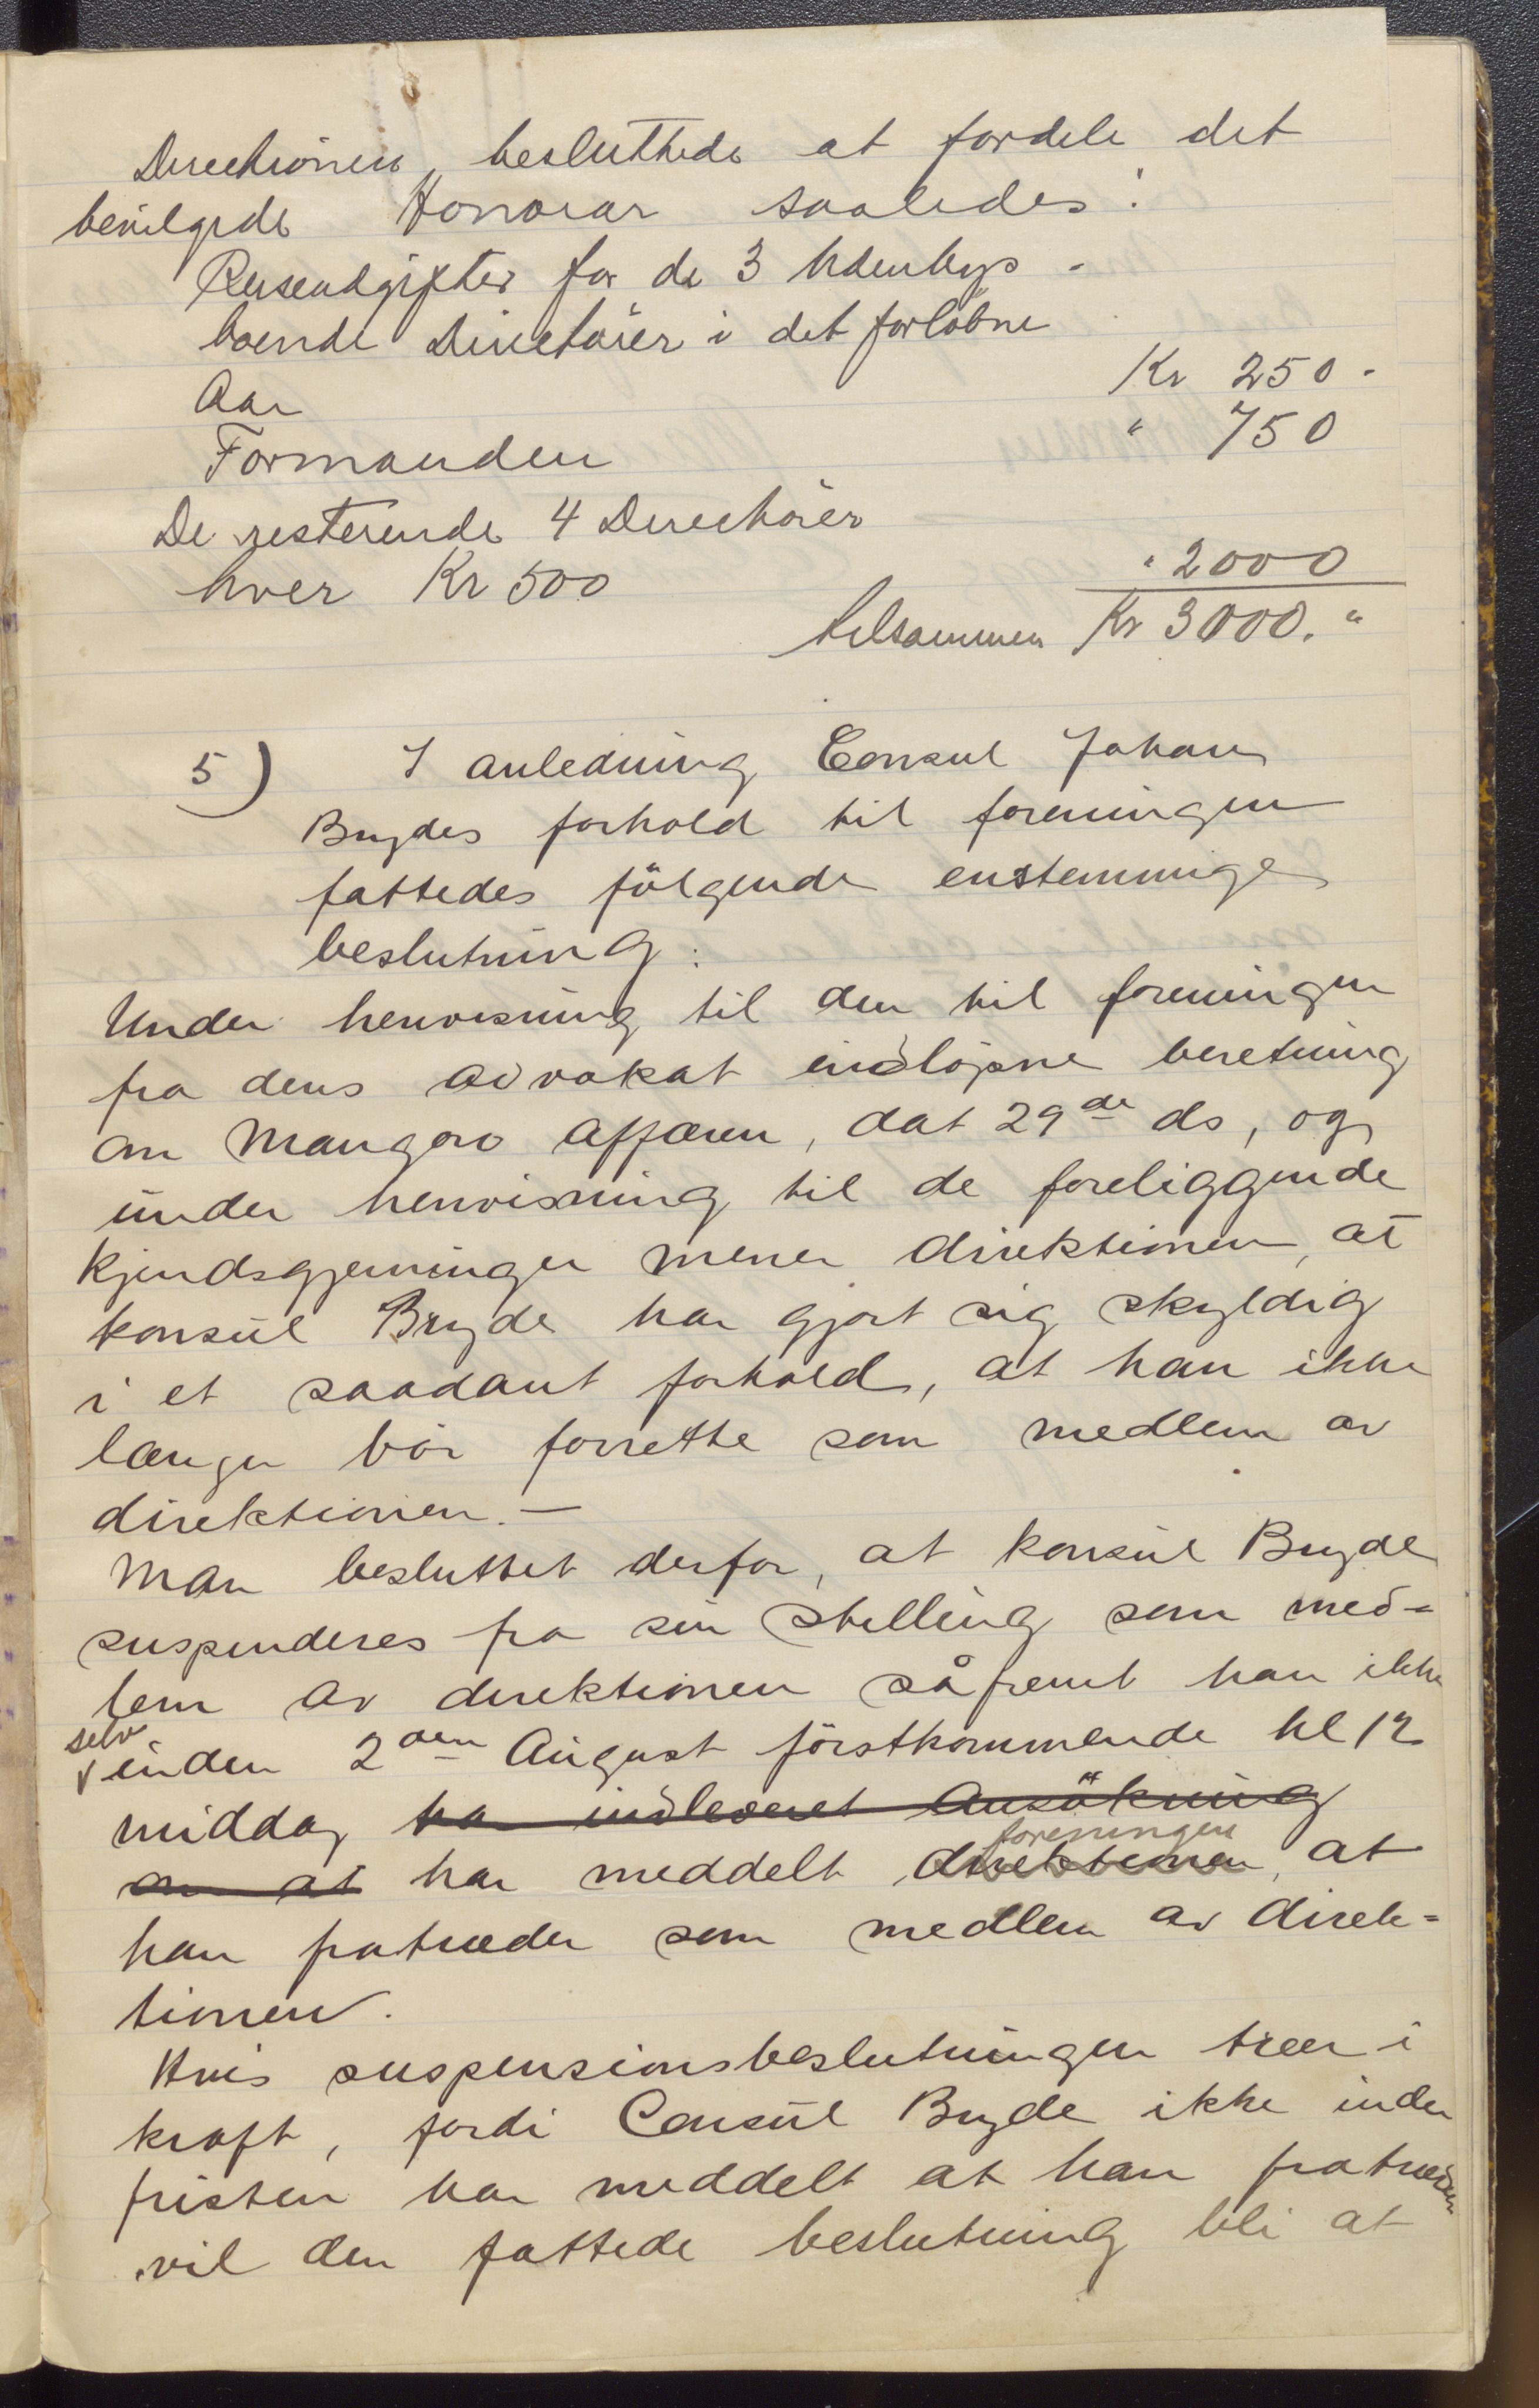 Directionen besluttede at fordele det
bevilgede Honorar saaledes:
Reiseudgifter for de 3 Udenbys-
boende Directører i det forløbne
Aar Kr 250.-
Formanden " 750
De resterende 4 Directører
hver Kr 500 " 2000
tilsammen Kr 3000."
5) I anledning Consul Johan
Brydes forhold til foreningen
fattedes följgende enstemmige
beslutning:
Under henvisning til den til foreningen
fra dens advokat indløpne beretning
om Mangoro affæren, dat 29de ds, og
under henvisning til de foreliggende
kjendsgjerninger mener direktionen, at
konsul Bryde har gjort sig skyldig
i et saadant forhold, at han ikke
længer bör forrette som medlem av
direktionen.—
Man besluttet derfor, at konsul Bryde
suspenderes fra sin stilling som med-
lem av direktionen såfremt han ikke
selv
inden 2den August förstkommende kl 12
middag har indleveret Ansökning
foreningen
om at har meddelt direktionen, at
han fratræder som medlem av direk=
tionen.
Hvis suspensionsbeslutningen træer i
kraft, fordi Consul Bryde ikke inden
fristen har meddelt at han fratræder
vil den fattede beslutning bli at